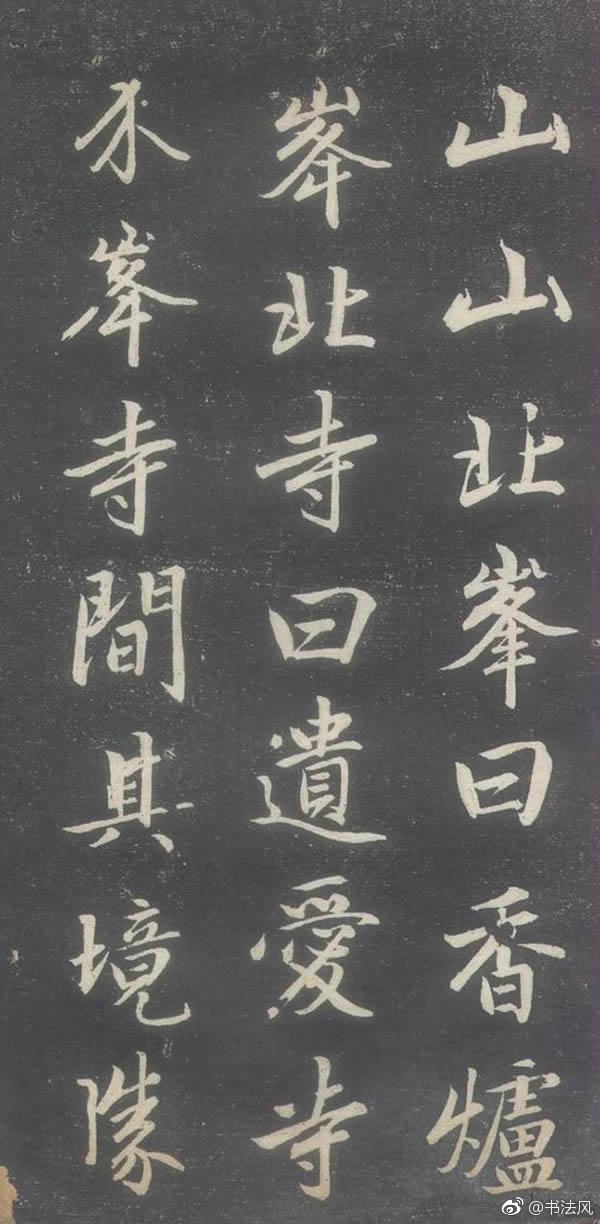 山山北峯曰香爐
峯北寺曰遺愛寺
介峯寺間其境勝
@书法风